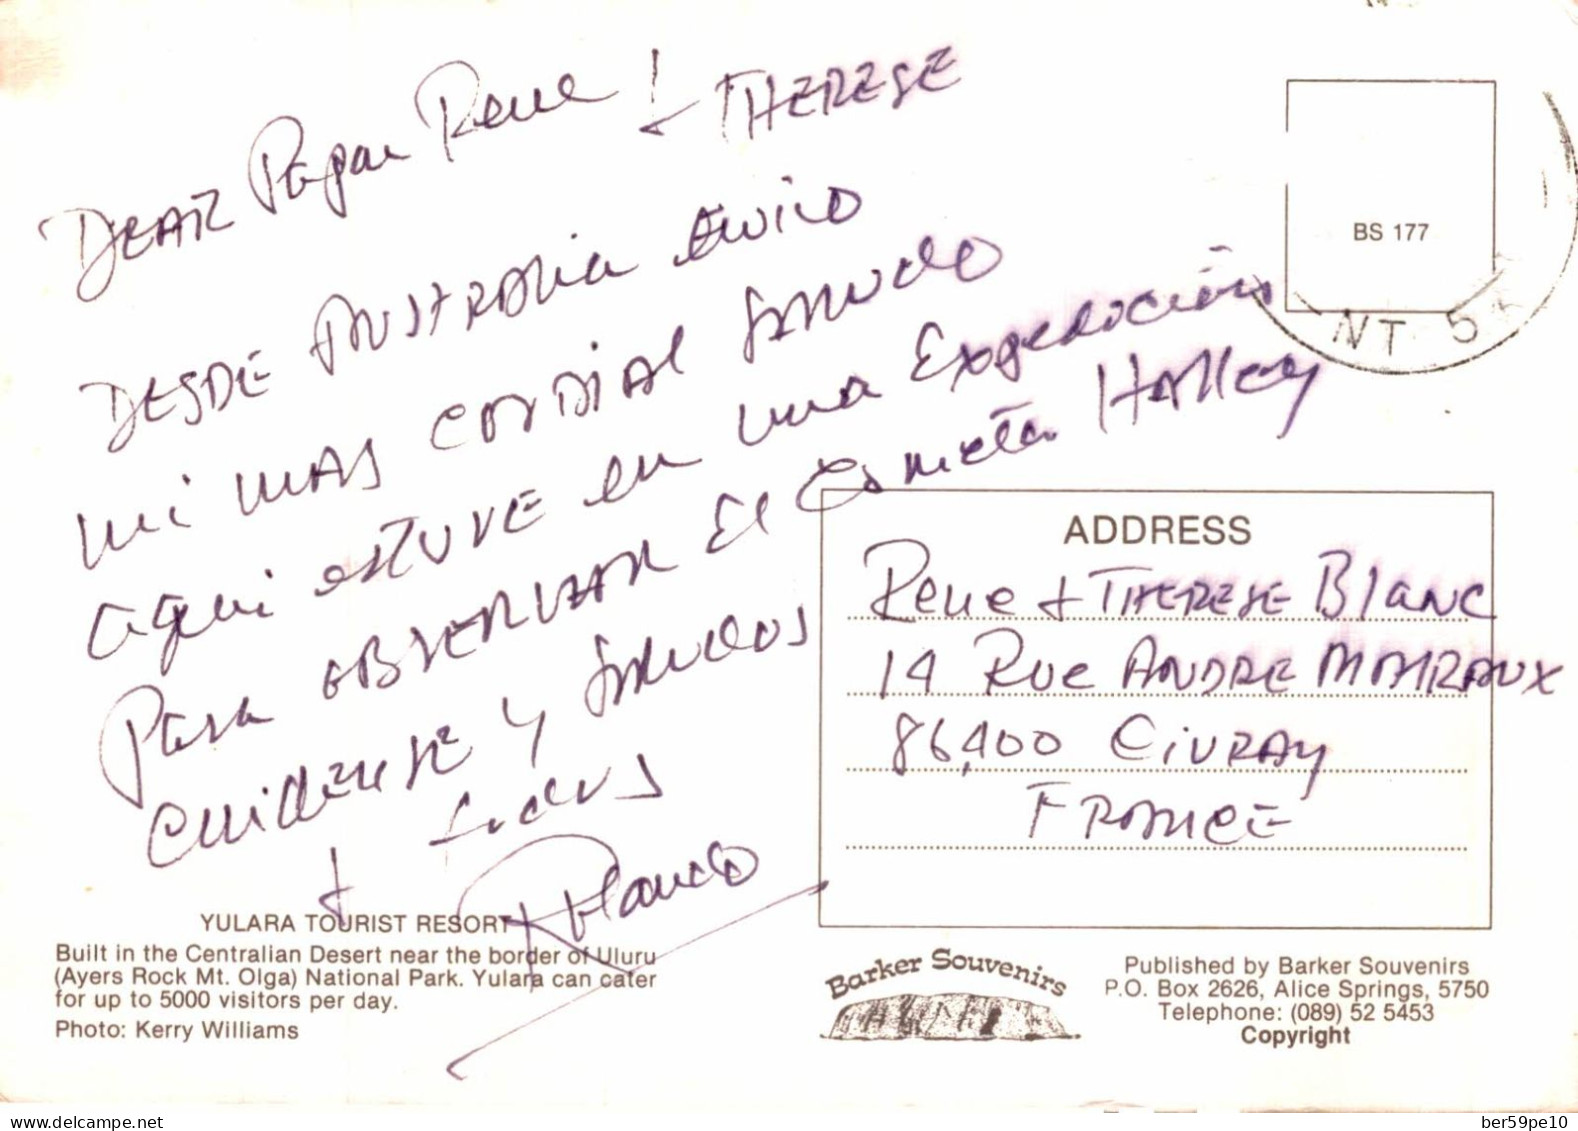 DEAR Papan Rene + THERESE
DESDE AUSTRALIA ENVIO
mi MAS CORDIAL SALUDO
aqui ESTUVE en una Expedición
Para OBSERVAR El Cometa Halley
cuidense y SALUDOS
A todos
Rolando
BS 177
NT 5
ADDRESS
Rene + THERESE Blanc
14 Rue ANDRE MALRAUX
86,400 CiVRAY
FRANCE
YULARA TOURIST RESORT
Built in the Centralian Desert near the border of Uluru
(Ayers Rock Mt. Olga) National Park. Yulara can cater
for up to 5000 visitors per day.
Photo: Kerry Williams
Barker Souvenirs
Published by Barker Souvenirs
P.O. Box 2626, Alice Springs, 5750
Telephone: (089) 52 5453
Copyright
www.delcampe.net
ber59pe10